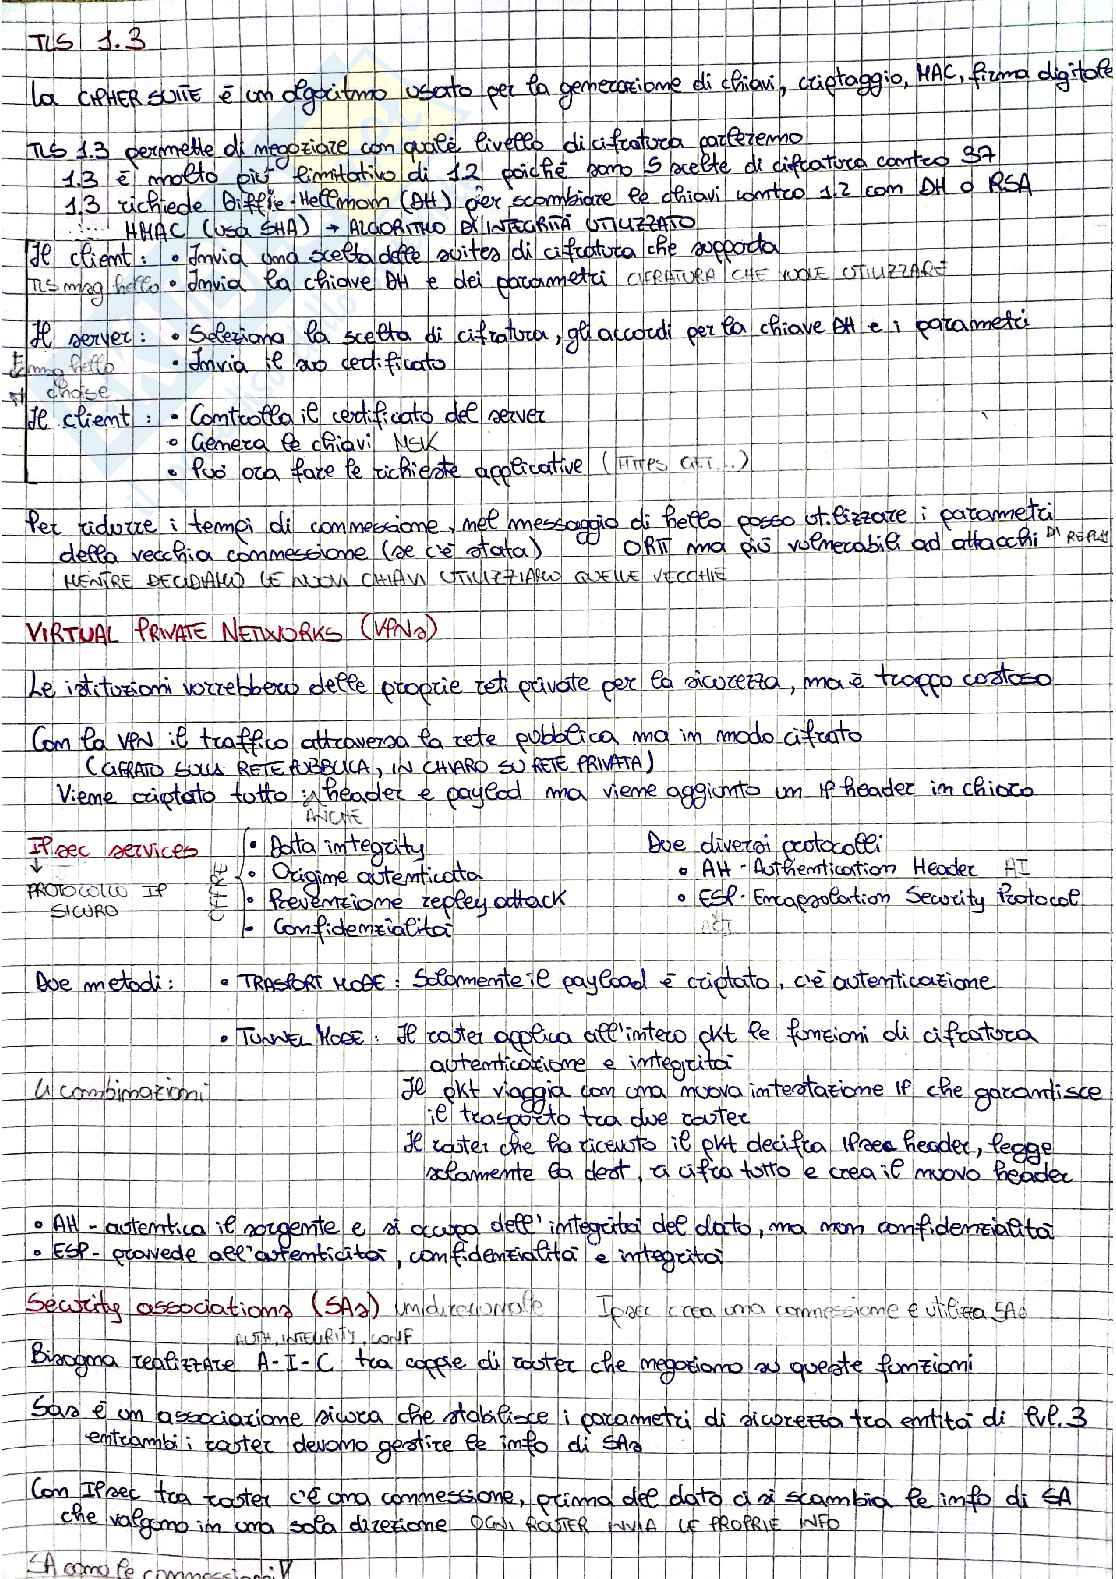 TLS 1.3
La CIPHER SUITE è un algoritmo usato per la generazione di chiavi, criptaggio, MAC, firma digitale
TLS 1.3 permette di negoziare con quale livello di cifratura parleremo
1.3 è molto più limitativo di 1.2 poiché sono 5 scelte di cifratura contro 37
1.3 richiede Diffie-Hellmon (DH) per scambiare le chiavi contro 1.2 con DH o RSA
HMAC (usa SHA) → ALGORITMO DI INTEGRITÀ UTILIZZATO
Il client: • Invia una scelta delle suites di cifratura che supporta
TLS msg hello • Invia la chiave DH e dei parametri CIFRATURA CHE VUOLE UTILIZZARE
Il server: • Seleziona la scelta di cifratura, gli accordi per la chiave DH e i parametri
msg hello • Invia il suo certificato
choise
Il client: • Controlla il certificato del server
• Genera le chiavi MSK
• Può ora fare le richieste applicative (HTTPS GET...)
Per ridurre i tempi di connessione, nel messaggio di hello posso utilizzare i parametri
della vecchia connessione (se c'è stata) 0RTT ma più vulnerabili ad attacchi DI REPLAY
MENTRE DECIDIAMO LE NUOVI CHIAVI UTILIZZIAMO QUELLE VECCHIE
VIRTUAL PRIVATE NETWORKS (VPNs)
Le istituzioni vorrebbero delle proprie reti private per la sicurezza, ma è troppo costoso
Con la VPN il traffico attraversa la rete pubblica ma in modo cifrato
(CIFRATO SULLA RETE PUBBLICA, IN CHIARO SU RETE PRIVATA)
Viene criptato tutto header e paylod ma viene aggiunto un IP header in chiaro
ANCHE
IPsec services • Data integrity Due diversi protocolli
↓ • Origine autenticata • AH - Authentication Header AI
PROTOCOLLO IP OFFRE • Prevenzione repley attack • ESP - Encapsolation Security Protocol
SICURO • Confidenzialità
Due metodi: • TRASPORT MODE: Solamente il payload è criptato, c'è autenticazione
• TUNNEL MODE: Il roster applica all'intero pkt le funzioni di cifratura
autenticazione e integrità
4 combinazioni Il pkt viaggia con una nuova intestazione IP che garantisce
il trasporto tra due roster
Il roster che ha ricevuto il pkt decifra IPsec header, legge
solamente la dest, ri cifra tutto e crea il nuovo header
• AH - autentica il sorgente e si occupa dell'integrità del dato, ma non confidenzialità
• ESP - provvede all'autenticità, confidenzialità e integrità
Security associations (SAs) unidirezionale IPsec crea una connessione e utilizza SAs
AUTH, INTEGRITY, CONF
Bisogna realizzare A-I-C tra coppie di roster che negoziano su queste funzioni
Sas è un associazione sicura che stabilisce i parametri di sicurezza tra entità di lvl.3
entrambi i roster devono gestire le info di SAs
Con IPsec tra roster c'è una connessione, prima del dato ci si scambia le info di SA
che valgono in una sola direzione OGNI ROUTER INVIA LE PROPRIE INFO
SA sono le connessioni!